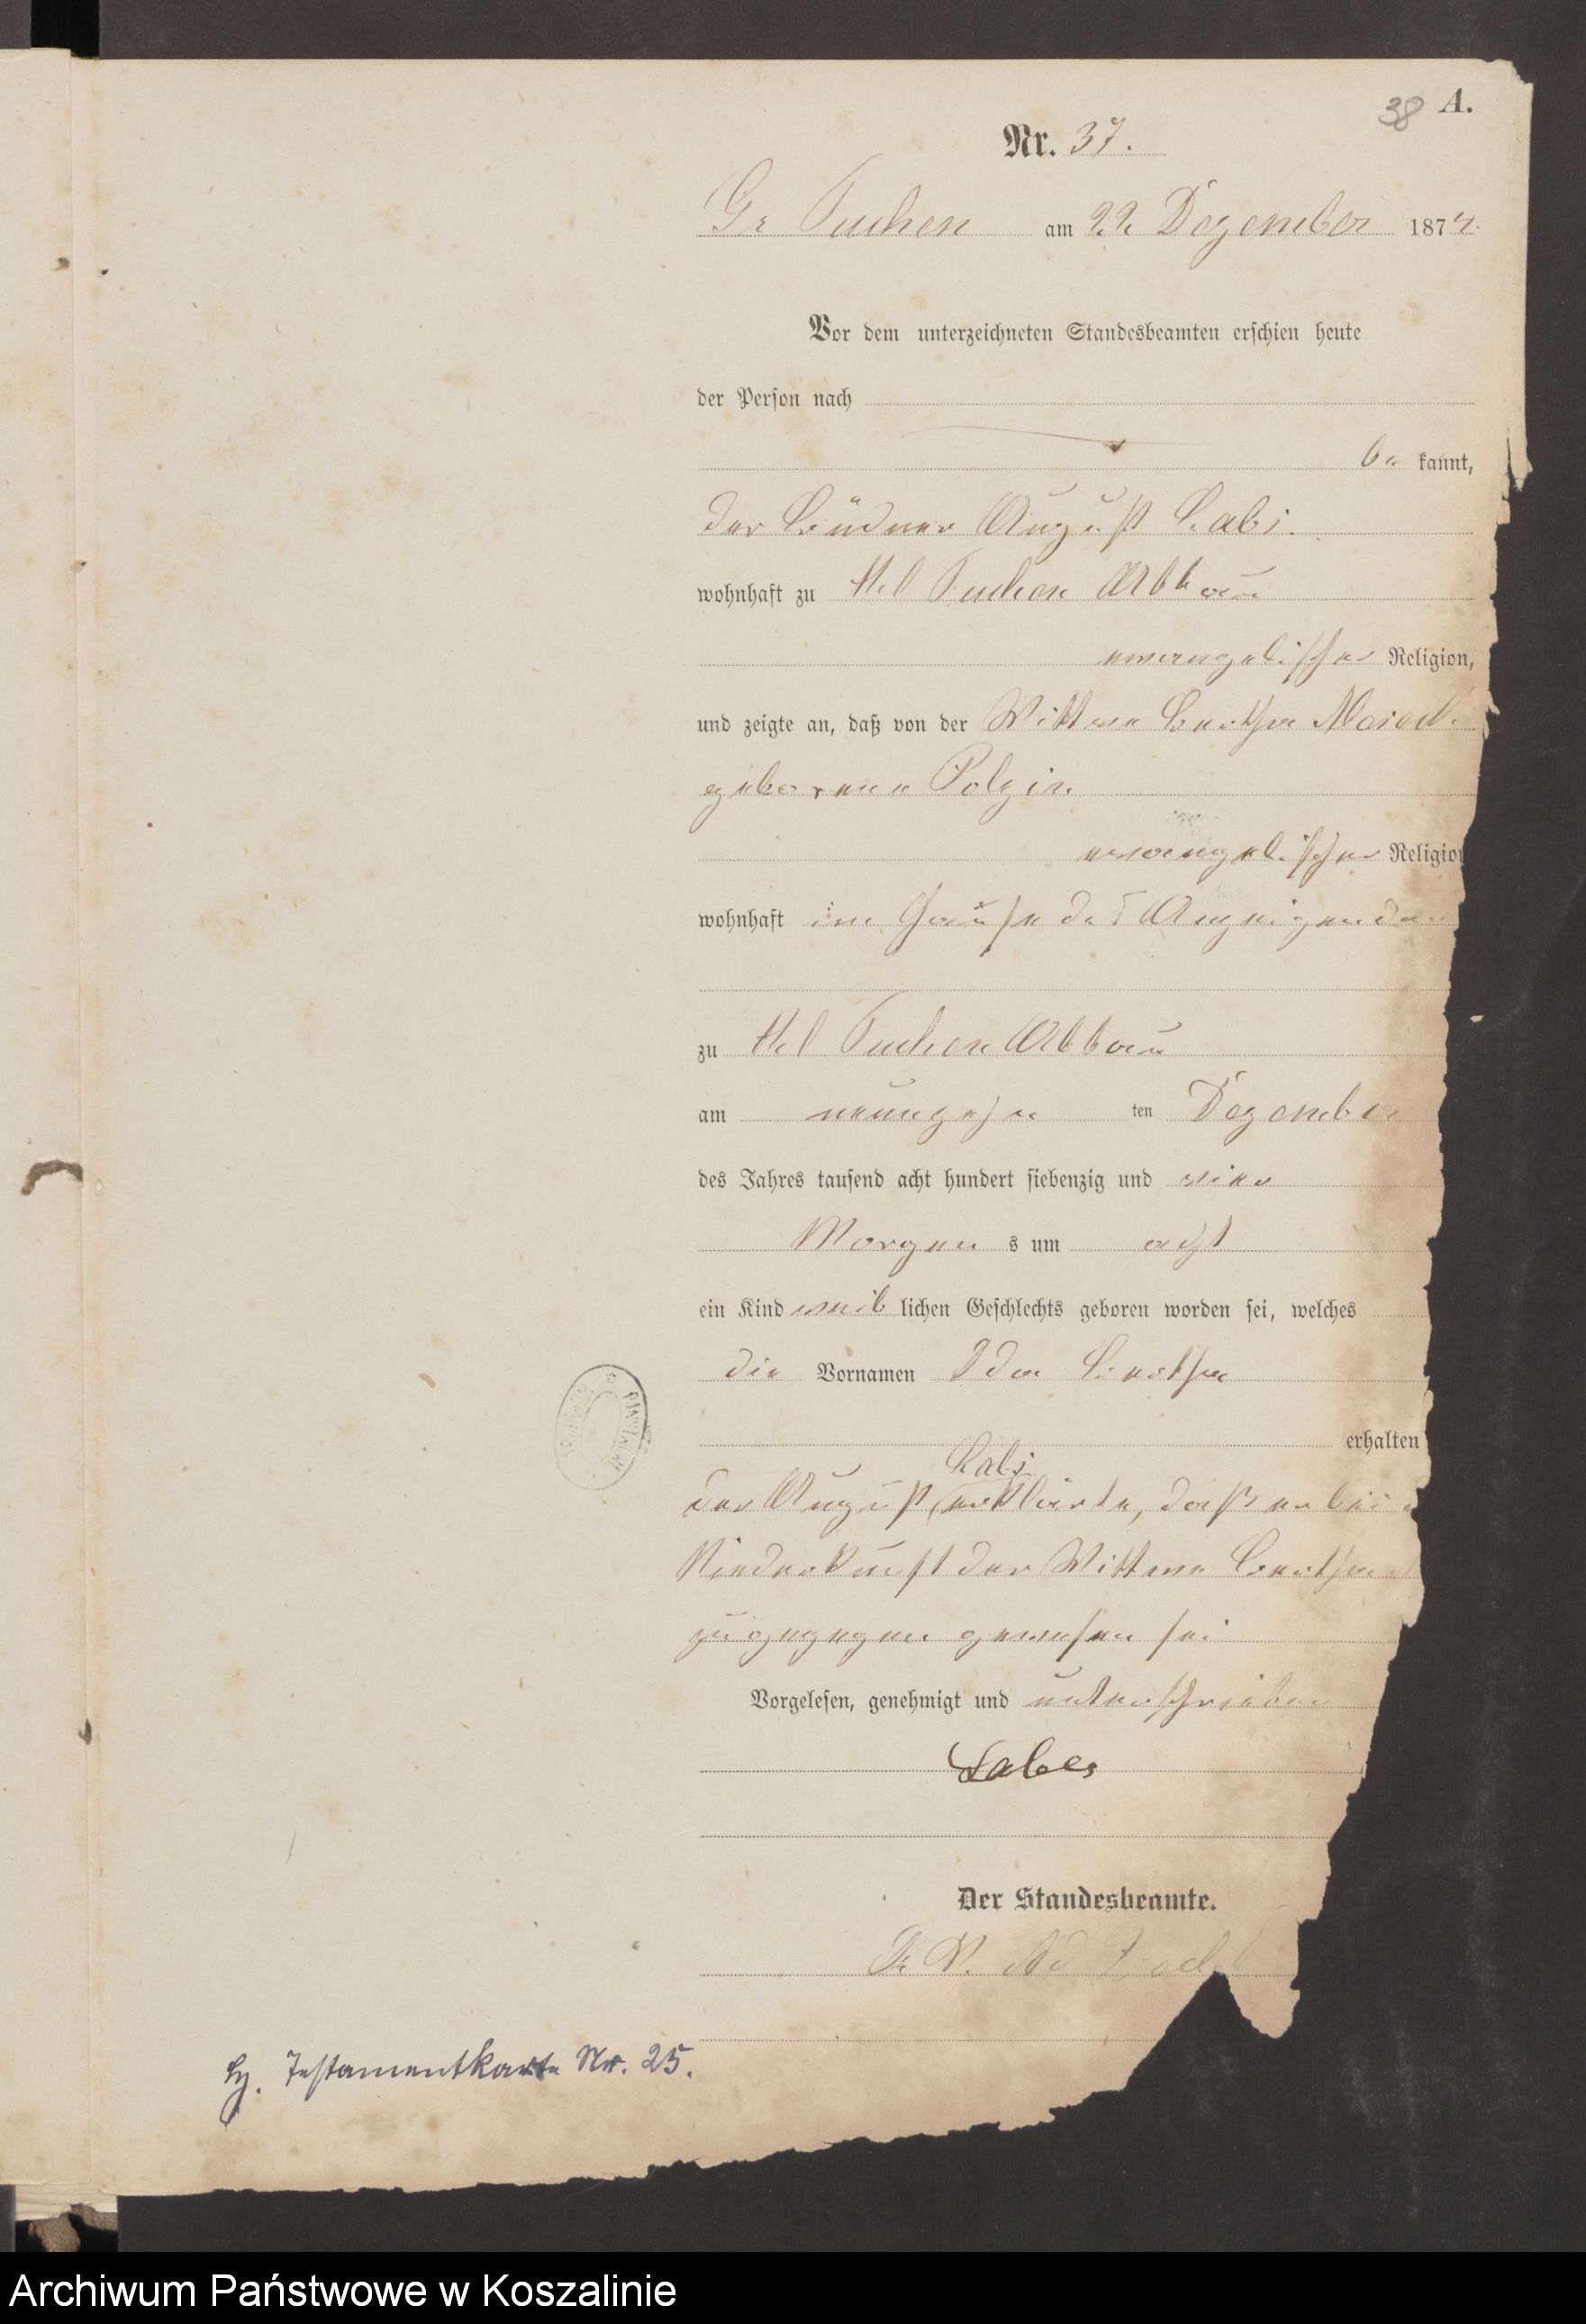 38 A.
Nr. 37.
Gr Tuchen am 22 Dezember 1874.
Vor dem unterzeichneten Standesbeamten erschien heute
der Person nach
be kannt,
der Büdner August Labs.
wohnhaft zu Kl Tuchen Abbau
evangelischer Religion,
und zeigte an, daß von der Wittwe Bertha
geborene Polzin
evangelischer Religion
wohnhaft im Hause des Anzeigenden
zu Kl Tuchen Abbau
am neunzehn ten Dezember
des Jahres tausend acht hundert siebenzig und vier
Morgen s um acht
ein Kind weib lichen Geschlechts geboren worden sei, welches
die Vornamen Ida Bertha
erhalten
Labs
der August erklärte, daß er bei
Niederkunft der Wittwe Bertha
zugegegen gewesen sei
Vorgelesen, genehmigt und unterschrieben
Labes
Der Standesbeamte.
Testamentkarte Nr. 25.
Archiwum Państwowe w Koszalinie